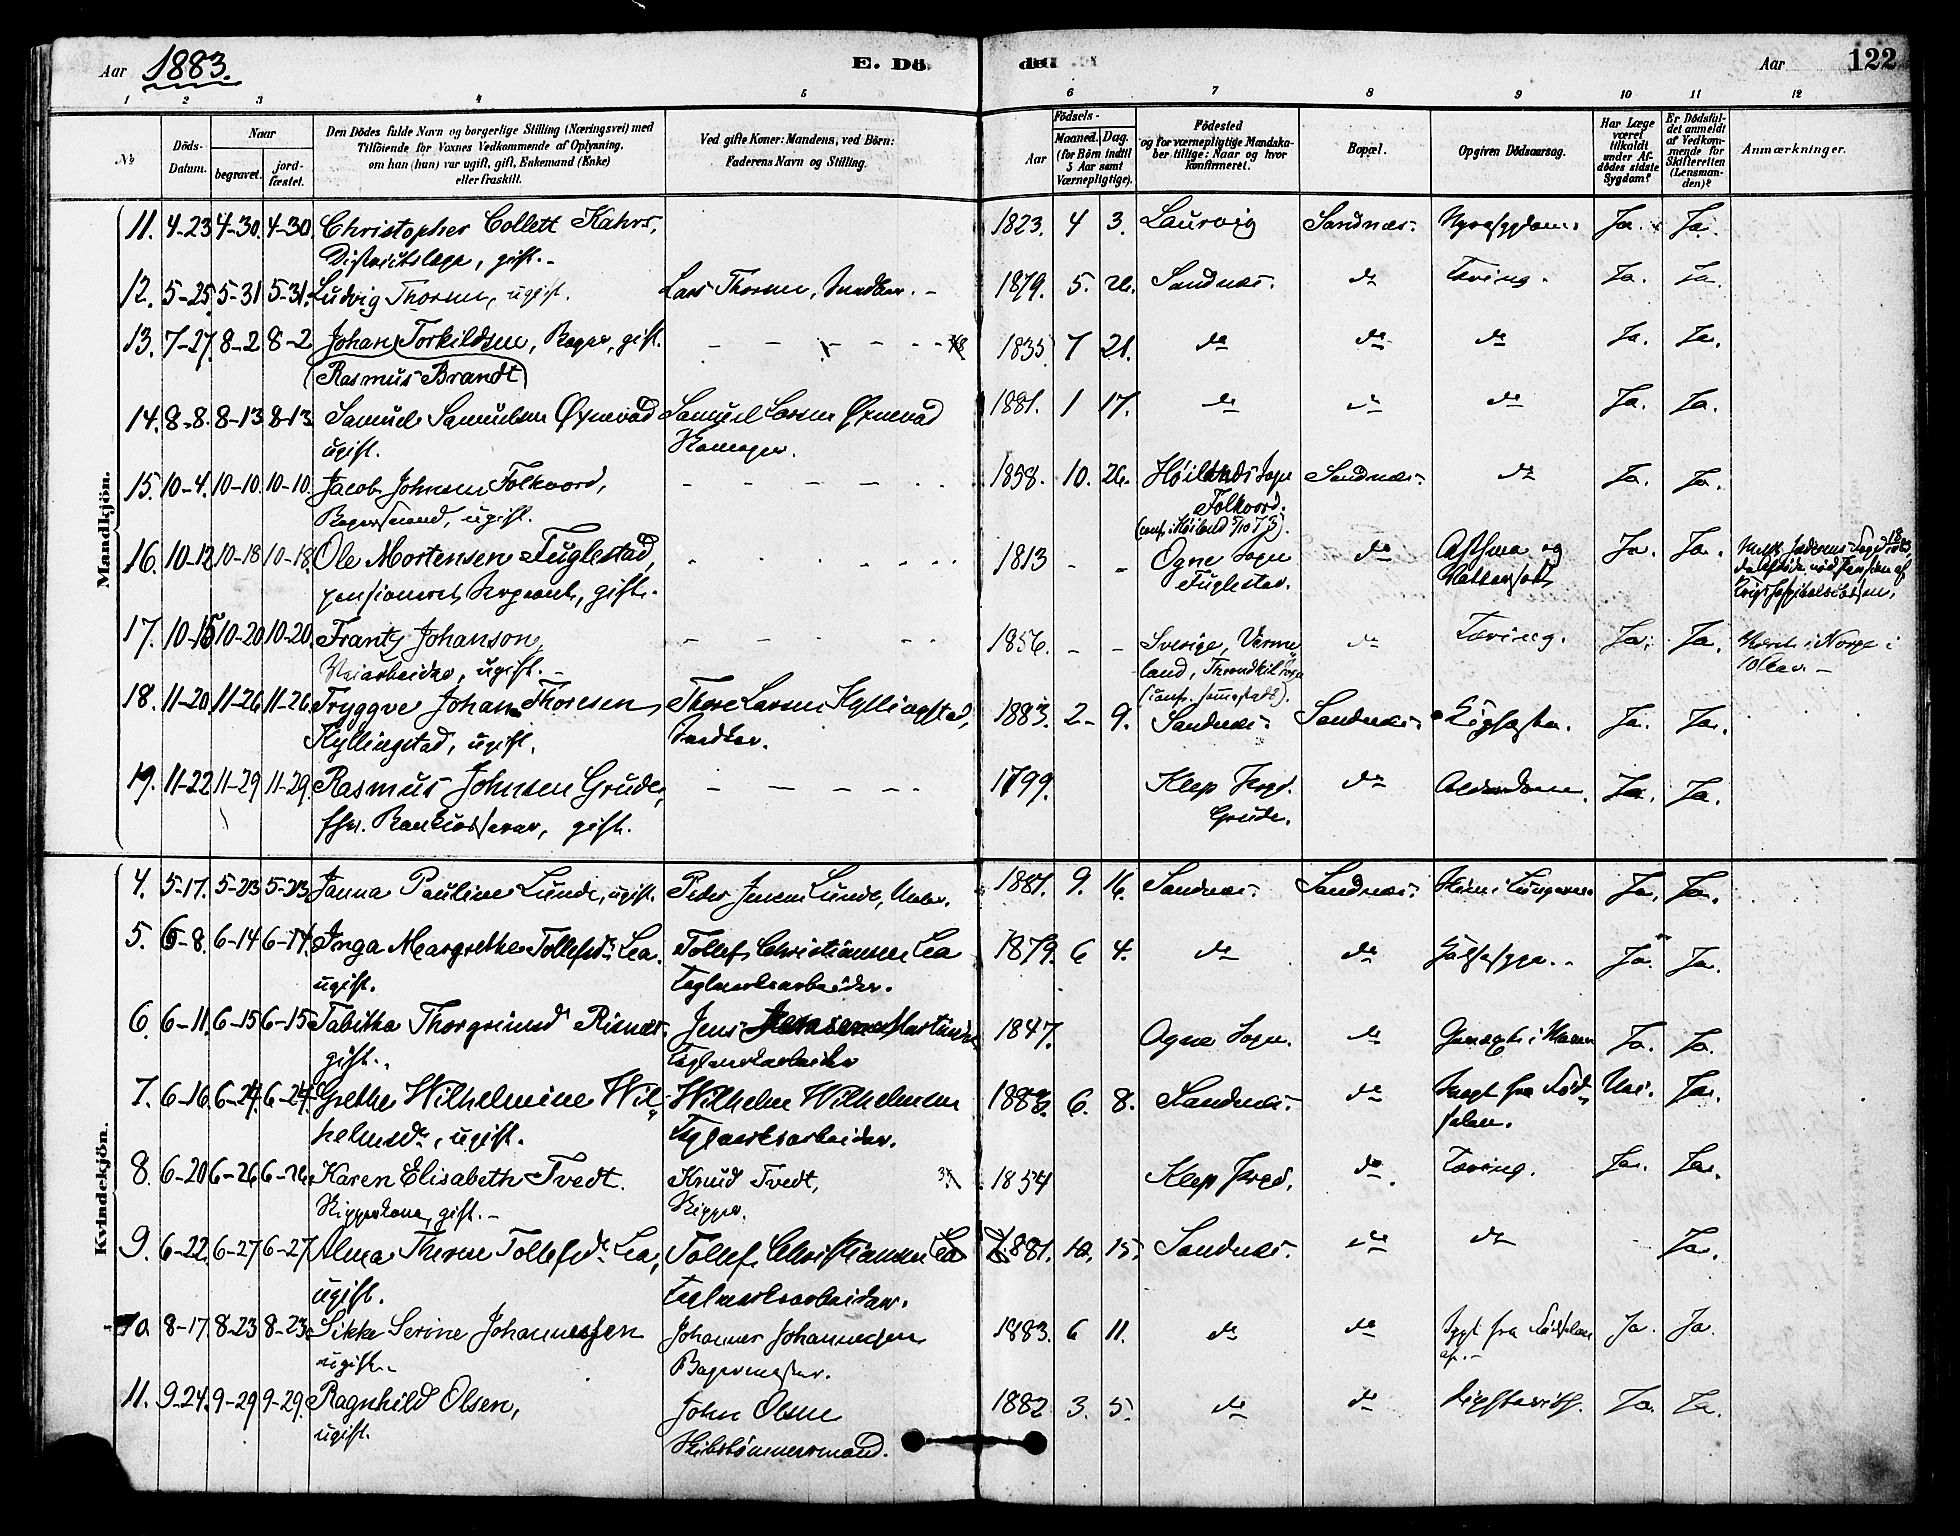 Aar 1883.
E. Dö
de
Aar
122
1 2 3 4 5 6 7 8 9 10 11 12
№
Döds-Datum.
Naar
begravet.
jord-fæstet.
Den Dödes fulde Navn og borgerlige Stilling (Næringsvei) med
Tilföiende for Voxnes Vedkommende af Oplysning,
om han (hun) var ugift, gift, Enkemand (Enke)
eller fraskilt.
Ved gifte Koner: Mandens, ved Börn:
Faderens Navn og Stilling.
Födsels-
Aar
Maaned.
Dag.
(for Börn indtil
5 Aar samt
Værnepligtige).
Födested
og for værnepligtige Mandska-
ber tillige: Naar og hvor
konfirmeret.
Bopæl.
Opgiven Dödsaarsag.
Har Læge
været
tilkaldt
under Af-
dödes sidste
Sygdom?
Er Dödsfal-
det anmeldt
af Vedkom-
mende for
Skifteretten
(Lensman-
den)?
Anmærkninger.
Mandkjön.
11. 4-23 4-30. 4-30. Christopher Collett Kahrs, 1823. 4 3. Laurvig Sandnæs. Ja. Ja.
Distriktslæge, gift.
12. 5-25. 5-31. 5-31. Ludvig Thorsen, ugift. Lars Thorsen, 1879. 5. 26. Sandnæs. do Tæring. Ja. Ja.
13. 7-27. 8-2 8-2 Johan Torkildsen, Bager, gift. 1835 7 21. do do do Ja. Ja.
(Rasmus Brandt)
14. 8-8. 8-13 8-13 Samuel Samuelsen Øxnevad Samuel Larsen Øxnevad 1881. 1 17. do do do Ja. Ja.
ugift.
15. 10-4. 10-10. 10-10. Jacob Johnsen Folkvord, 1858. 10. 26. Høilands Sogn Sandnæs. do Ja. Ja.
Bagersvend, ugift. Folkvord.
(conf. i Høiland
16. 10-12 10-18 10-18. Ole Mortensen Fuglestad, 1813 - - Ogne Sogn do Asthma og Ja. Ja.
pensioneret Sergeant, gift. Fuglestad. Vattersott
17. 10-15 10-20 10-20. Frantz Johanson, 1856. - - Sverige, Verme- do Tæring. Ja. Ja. Været i Norge i
Veiarbeider, ugift. land,
18. 11-20. 11-26 11-26 Tryggve Johan Thoresen Thore Larsen Kyllingstad, 1883. 2- 9. Sandnæs. Sandnæs. Ja. Ja.
Kyllingstad, ugift. Snedker.
19. 11-22 11-29 11-29. Rasmus Johnsen Grude, 1799. Klep Prgd. do Alderdom. Ja. Ja.
fhv. gift. Grude.
Kvindekjön.
4. 5-17. 5-23 5-23 Janna Pauline Lunde, ugift. Peder Jensen Lunde, 1881. 9. 16. Sandnæs. Sandnæs. Ja. Ja.
5. 6-8. 6-14 6-14. Inga Margrethe Tollefsdr. Lea. Tollef Christiansen Lea 1879. 6 4. do do Ja. Ja.
ugift. Teglverksarbeider.
6. 6-11. 6-15 6-15 Tabitha Thorgrimsd. Jens 1847. Ogne Sogn. do Ja. Ja.
gift. Teglverksarbeider
7. 6-16. 6-24. 6-24. Grethe Wilhelmine Wil- Wilhelm Wilhelmsen 1883. 6. 8. Sandnæs. do Svagt fra Fød- Nei. Ja.
helmsdr., ugift. Teglverksarbeider. selen.
8. 6-20 6-26 6-26. Karen Elisabeth Tvedt. Knud Tvedt, 1854 Klep Prgd. do. Tæring. Ja. Ja.
Skipperkone, gift. Skipper.
9. 6-22. 6-27 6-27 Alma Therese Tollefsdr. Lea, Tollef Christiansen Lea 1881. 10. 15. Sandnæs. do do - Ja.
ugift. Teglverksarbeider.
10. 8-17. 8-23 8-23. Sikke Serine Johannessen Johannes Johannessen 1883. 6 11. do do Sygt fra Fødselen Ja. Ja.
ugift. Bagermester. af.
11. 9-24. 9-29 9-29. Ragnhild Olsen, John Olsen 1882 3. 5. do do Ja. Ja.
ugift. Skibstømmermand.